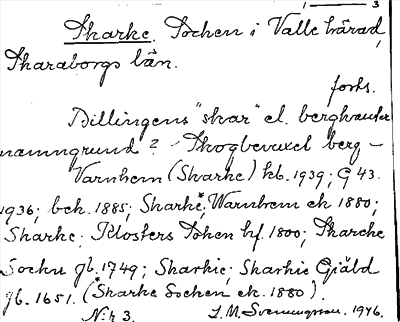 1 — 3
Skarke. Socken i Valle härad,
Skaraborgs län.
forts.
Billingens "skar" el. berghanter
namngrund? - Skogbevuxet berg -
Varnhem (Skarke) kb. 1939; G 43.
1936; bek. 1885; Skarke; Warnhem ek 1880;
Skarke; Klosters Soken hf. 1800; Skarcke
Sockn gb. 1749; Skarkie; Skarkie Giäld
gb. 1651. (Skarke Socken ek. 1880).
N:r 3. S. M. Svenungsson. 1946.